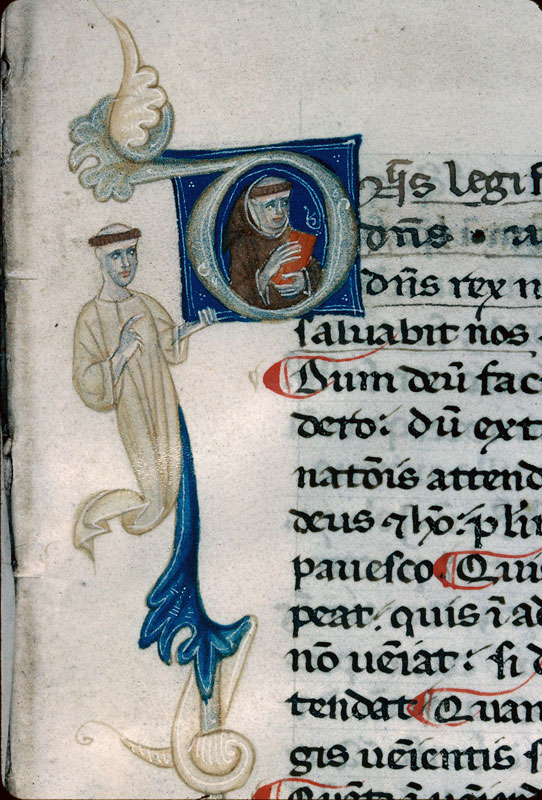 Dn̄s legif
dn̄s · n
dn̄s rex n
saluabit nos
Dum deū fac
dero: dū ext
natōis attend
deus ⁊ hō: p
pauesco Quis
peat. quis ī ad
nō uēiat: si d
tendat Quan
gis uēientis s